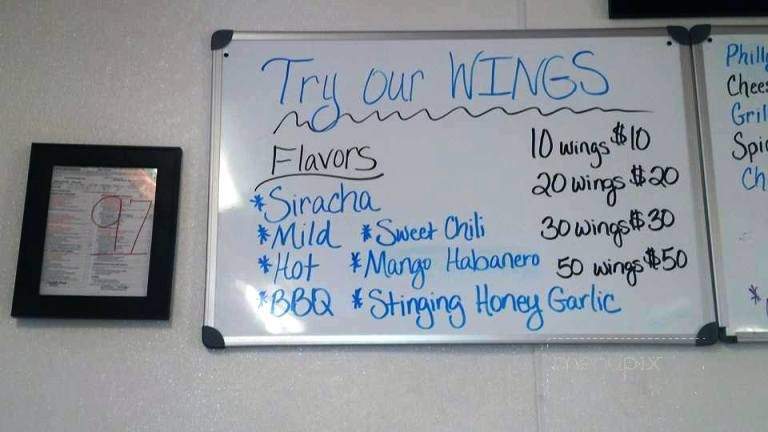 Try our WINGS
Flavors
10 wings $10
20 wings $20
30 wings $30
50 wings $50
*Siracha
*Mild *Sweet Chili
*Hot *Mango Habanero
*BBQ *Stinging Honey Garlic
97
Philly
Chees
Gril
Spic
Ch
*
menupix